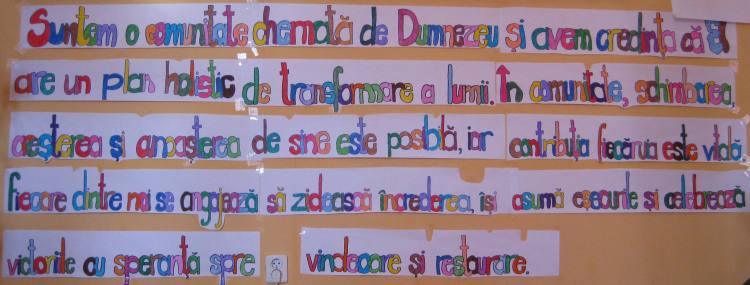 Suntem o comunitate chemată de Dumnezeu și avem credința că El
are un plan holistic de transformare a lumii. În comunitate, schimbarea,
creșterea și cunoașterea de sine este posibilă, iar contribuția fiecăruia este vitală.
fiecare dintre noi se angajează să zidească încrederea, își asumă eșecurile și celebrează
victoriile cu speranță spre vindecare și restaurare.